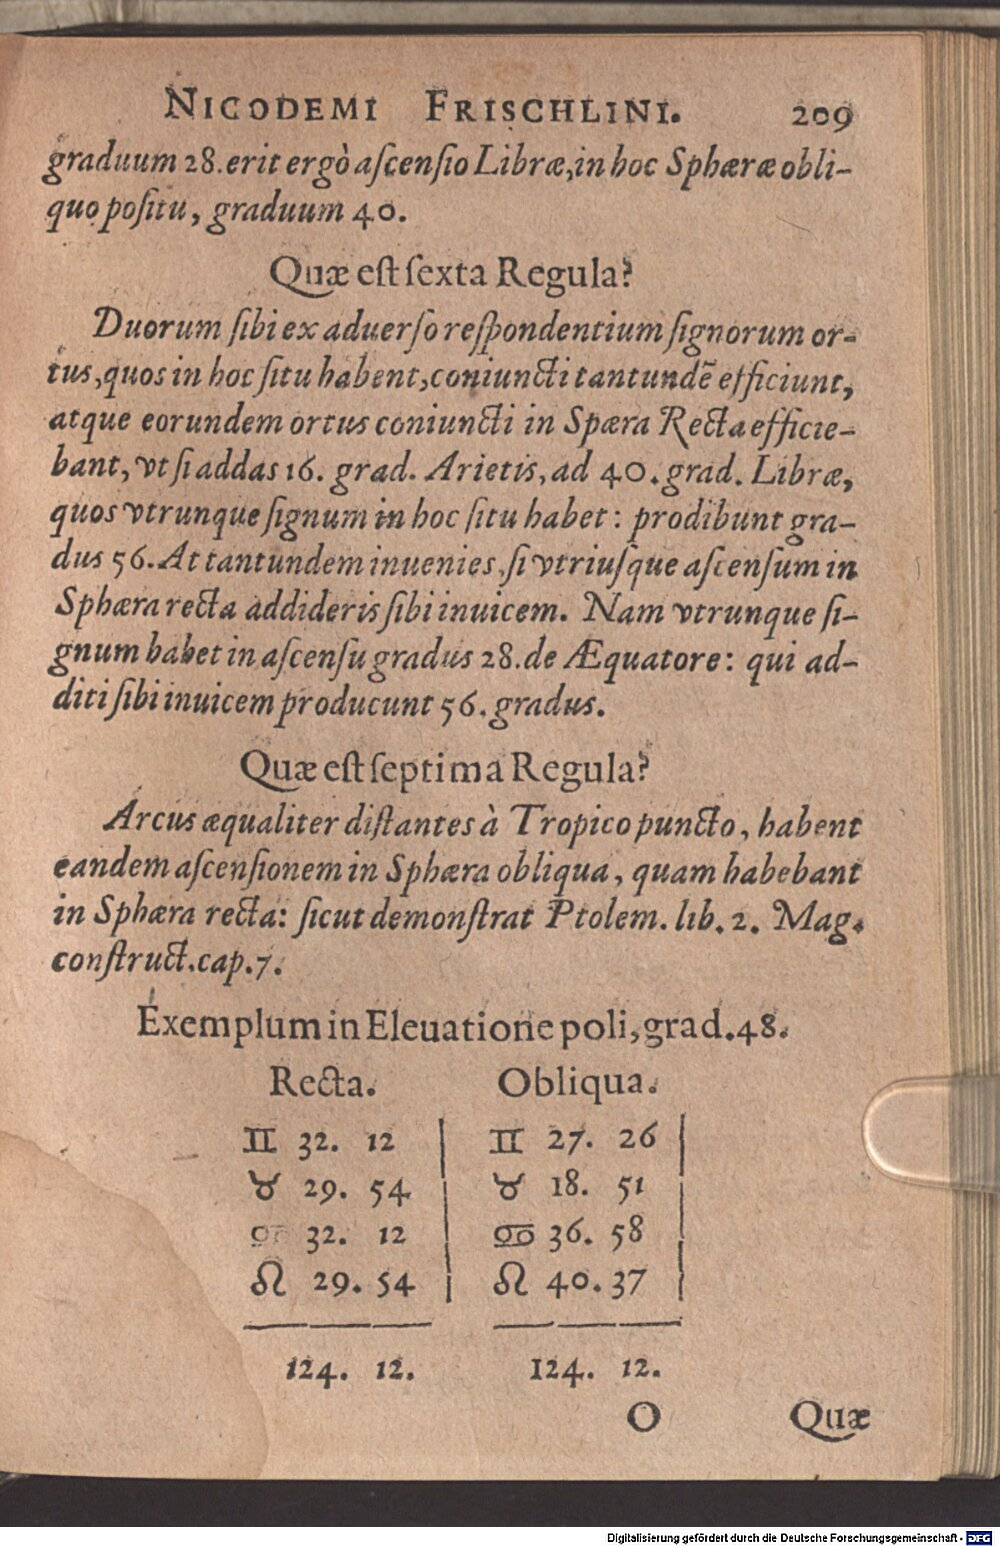 NICODEMI FRISCHLINI. 209
graduum 28. erit ergò ascensio Libræ, in hoc Sphæræ obli-
quo positu, graduum 40.
Quæ est sexta Regula?
Duorum sibi ex aduerso respondentium signorum or-
tus, quos in hoc situ habent, coniuncti tantundē efficiunt,
atque eorundem ortus coniuncti in Spæra Recta efficie-
bant, vt si addas 16. grad. Arietis, ad 40. grad. Libræ,
quos vtrunque signum in hoc situ habet: prodibunt gra-
dus 56. At tantundem inuenies, si vtriusque ascensum in
Sphæra recta addideris sibi inuicem. Nam vtrunque si-
gnum habet in ascensu gradus 28. de Æquatore: qui ad-
diti sibi inuicem producunt 56. gradus.
Quæ est septima Regula?
Arcus æqualiter distantes à Tropico puncto, habent
eandem ascensionem in Sphæra obliqua, quam habebant
in Sphæra recta: sicut demonstrat Ptolem. lib. 2. Mag.
construct. cap. 7.
Exemplum in Eleuatione poli, grad. 48.
Recta. Obliqua.
♊ 32. 12 | ♊ 27. 26 |
♉ 29. 54 | ♉ 18. 51 |
♋ 32. 12 | ♋ 36. 58 |
♌ 29. 54 | ♌ 40. 37 |
124. 12. 124. 12.
O Quæ
Digitalisierung gefördert durch die Deutsche Forschungsgemeinschaft - DFG